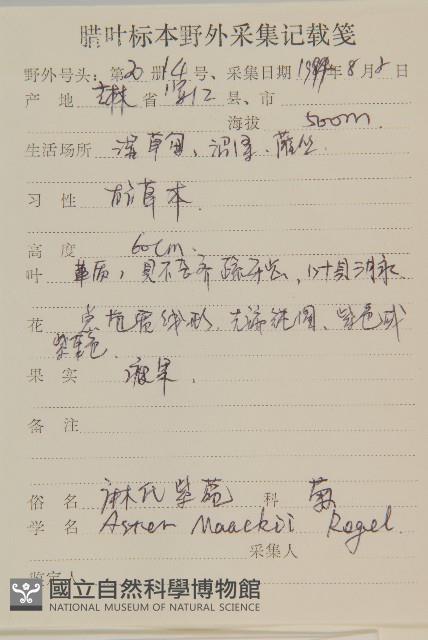 腊叶标本野外采集记载笺
野外号头：第 册14号、采集日期1999年8月2日
产 地 吉林省 江 县、市
海拔 500m.
生活场所 湿草甸，沼泽、灌丛
习 性 草本.
高 度 60cm.
叶 革质，具不整齐疏牙齿，
花 总苞 线形，先端钝圆、紫色或
紫 色.
果 实 瘦果.
备 注
俗 名 麻氏紫菀 科 菊
学 名 Aster Maackii Regel.
采集人
鉴定人
國立自然科學博物館
NATIONAL MUSEUM OF NATURAL SCIENCE